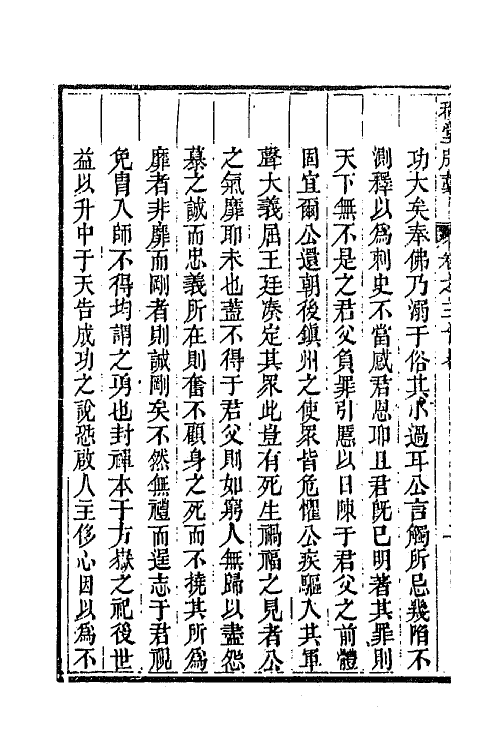 功大矣奉佛乃溺于俗其小過耳公言觸所忌幾陷不
測釋以爲刺史不當感君恩耶且君旣已明著其罪則
天下無不是之君父負罪引慝以日陳于君父之前體
固宜爾公還朝後鎮州之使眾皆危懼公疾驅入其軍
聲大義屈王廷湊定其眾此豈有死生禍福之見者公
之氣靡耶未也蓋不得于君父則如窮人無歸以盡怨
慕之誠而忠義所在則奮不顧身之死而不撓其所爲
靡者非靡而剛者則誠剛矣不然無禮而逞志于君視
免胄入師不得均謂之勇也封禪本于方嶽之祀後世
益以升中于天告成功之說恐啟人主侈心因以爲不